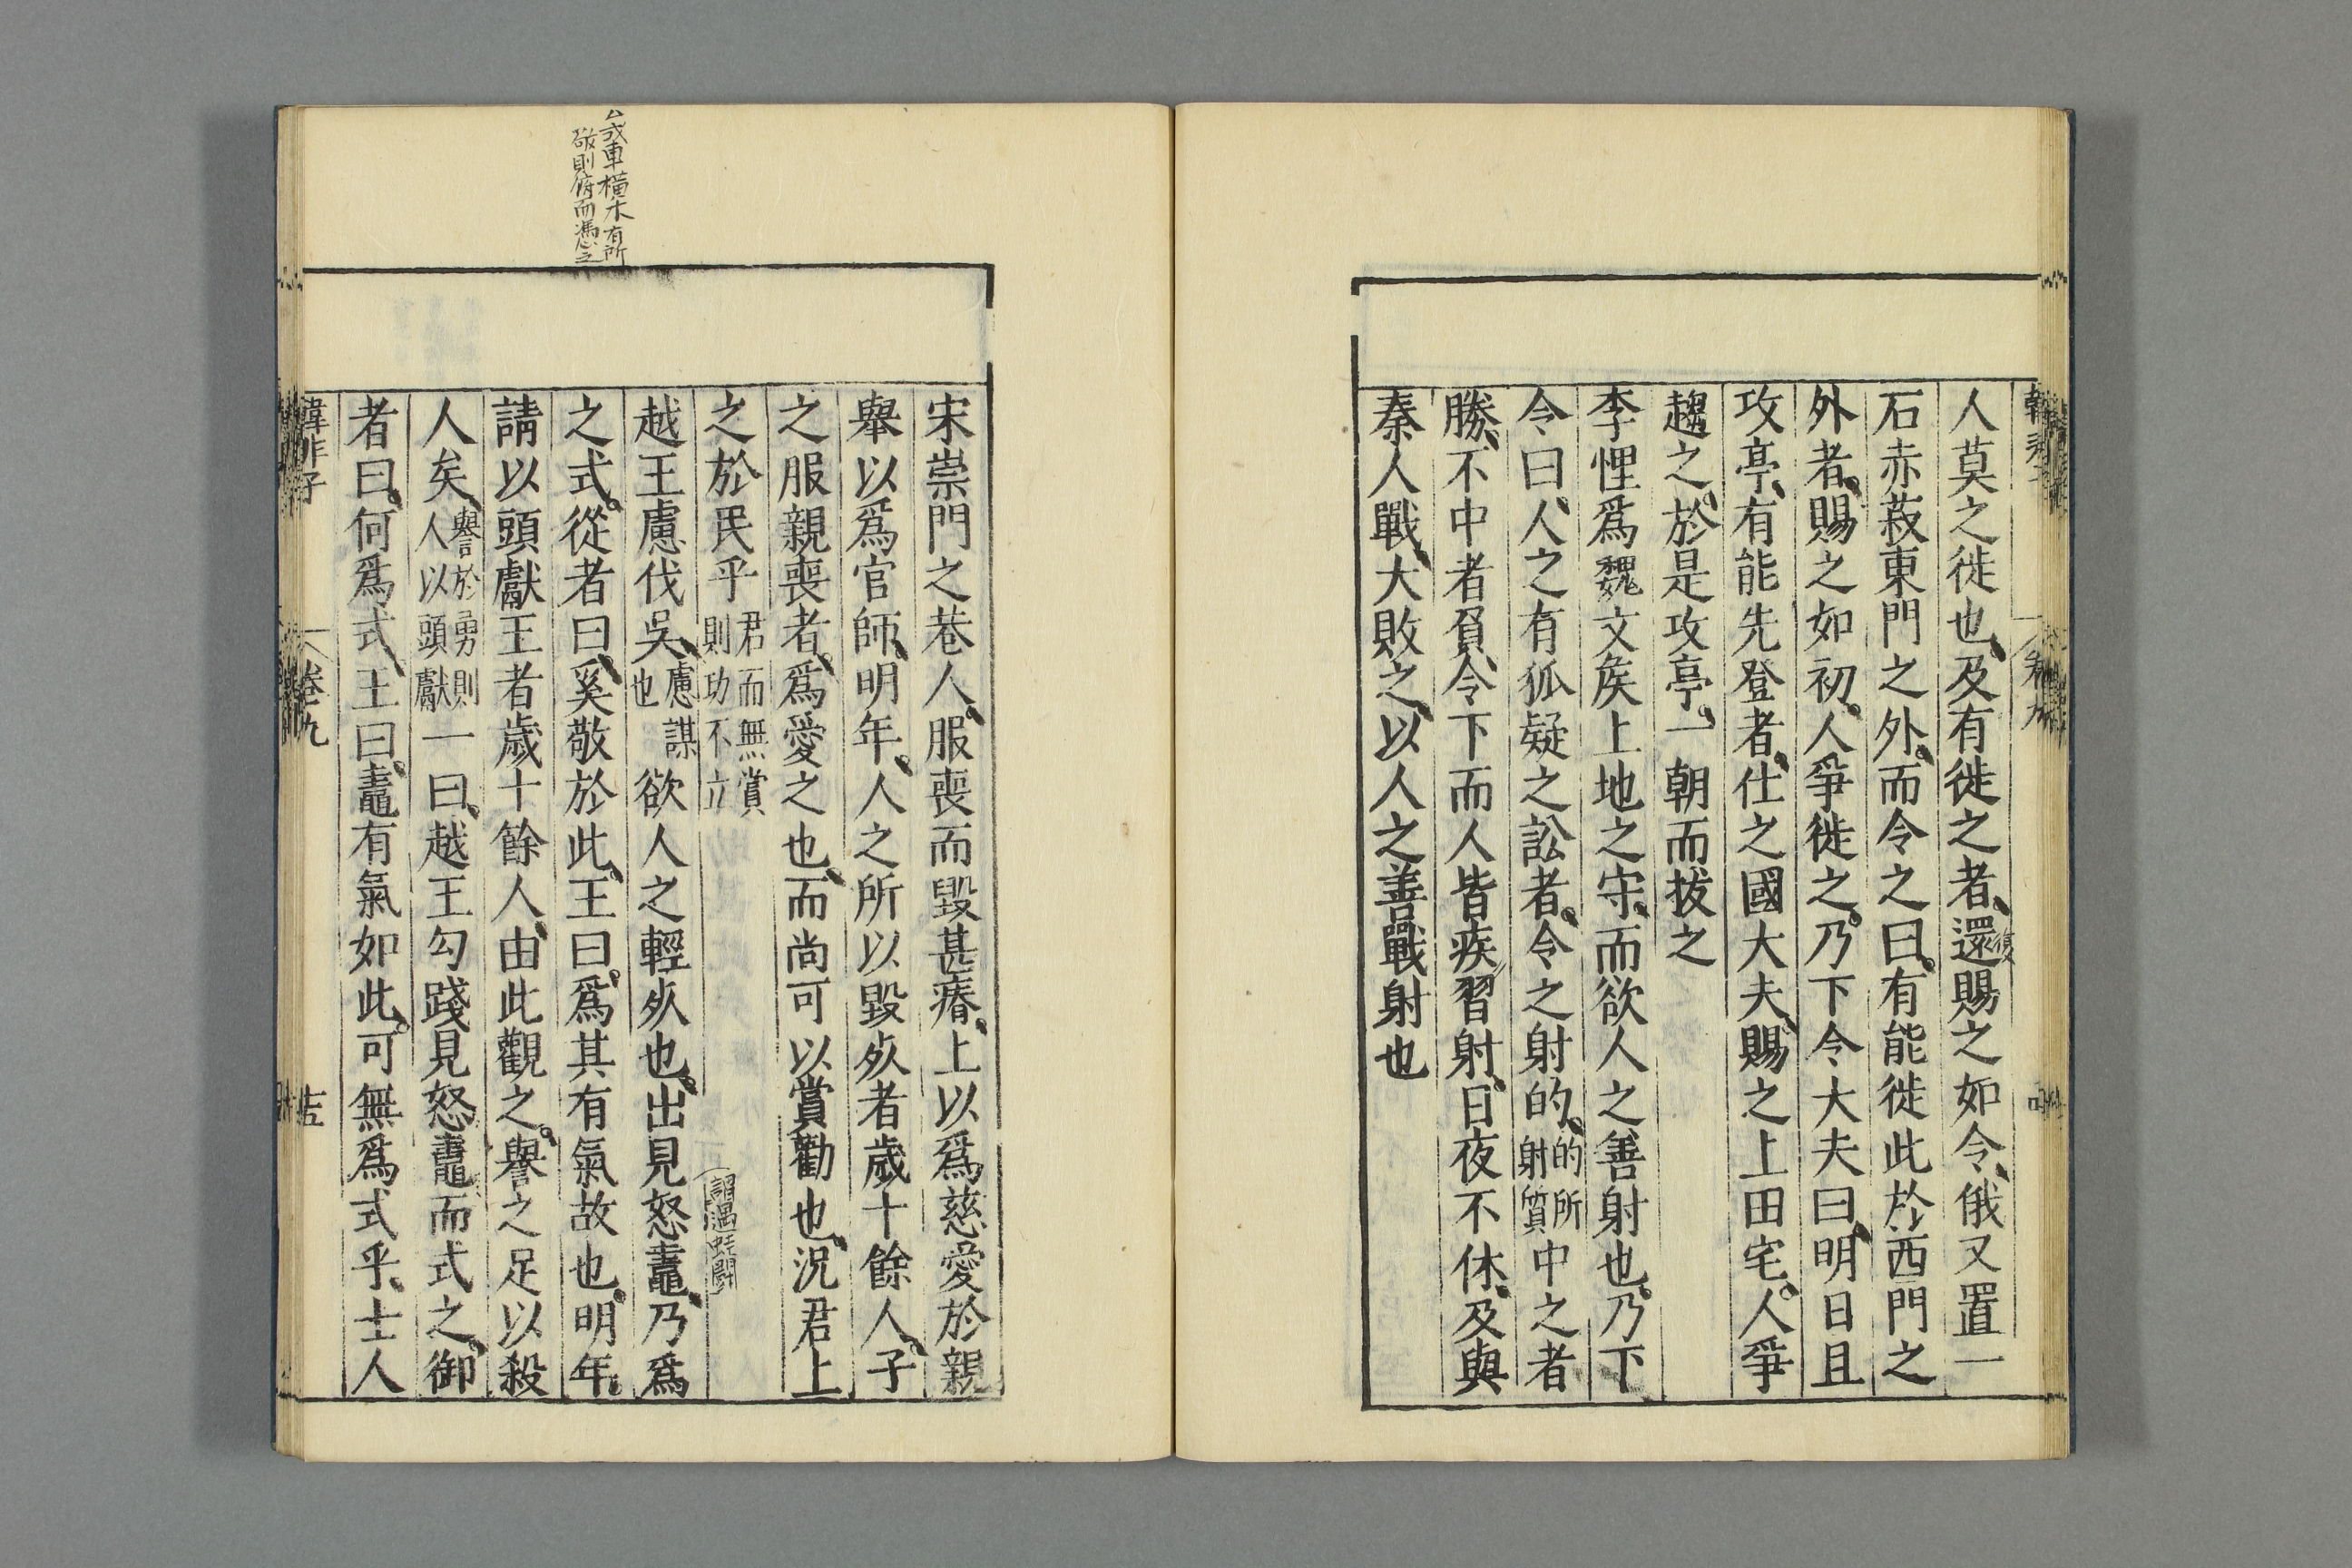 人莫之徙也及有徙之者還賜之如令俄又置一
復
石赤菽東門之外而令之曰有能徙此於西門之
外者賜之如初人爭徙之乃下令大夫曰明日且
攻亭有能先登者仕之國大夫賜之上田宅人爭
趨之於是攻亭一朝而拔之
李悝爲魏文矦上地之守而欲人之善射也乃下
令曰人之有狐疑之訟者令之射的的所射質中之者
勝不中者負令下而人皆疾習射日夜不休及與
秦人戰大敗之以人之善戰射也
宋崇門之巷人服喪而毀甚瘠上以爲慈愛於親
舉以爲官師明年人之所以毀死者歲十餘人子
之服親喪者爲愛之也而尚可以賞勸也況君上
之於民乎君而無賞則功不立
謂遇蛙鬪
越王慮伐吳慮謀也欲人之輕死也出見怒鼃乃爲
之式從者曰奚敬於此王曰爲其有氣故也明年
請以頭獻王者歲十餘人由此觀之譽之足以殺
人矣譽於勇則人以頭獻一曰越王勾踐見怒鼃而式之御
者曰何爲式王曰鼃有氣如此可無爲式乎士人
式車橫木有所
敬則俯而馮之
韓非子 卷九 十五